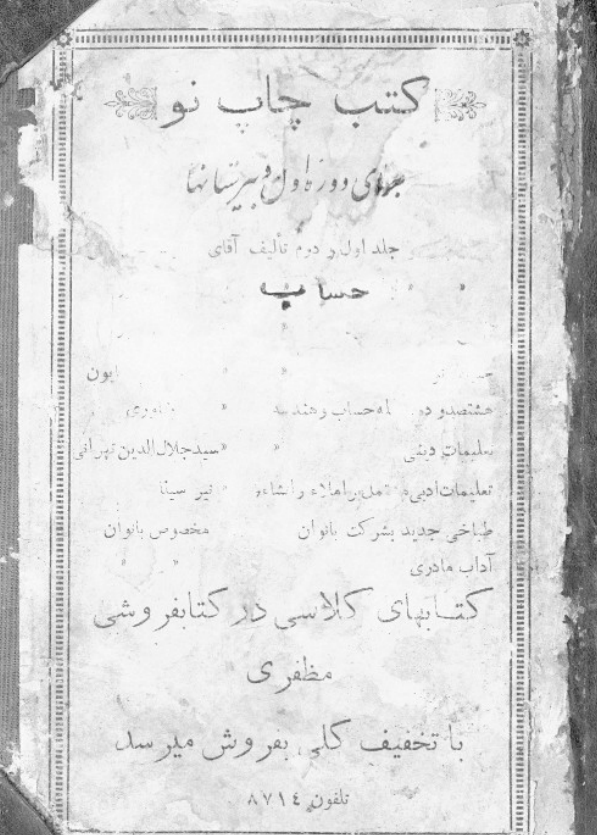 کتب چاپ نو
برای دوره اول دبیرستانها
جلد اول و دوم تألیف آقای
حساب » » »
»
» » ایون
هشتصد و ده مسئله حساب و هندسه »
تعلیمات دینی » » سید جلال الدین تهرانی
تعلیمات ادبی املاء و انشاء » نیر سینا
طباخی جدید بشرکت بانوان مخصوص بانوان
آداب مادری » »
کتابهای کلاسی در کتابفروشی
مظفری
با تخفیف کلی بفروش میرسد
تلفون ۸۷۱۴